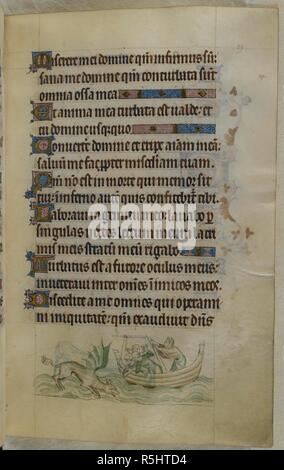 Miserere mei domine qm̄ infirmus sū:
sana me domine qm̄ conturbata sūt
omnia ossa mea
Et anima mea turbata est valde: et
tu domine usq; quo
Convertē domine et eripe aīam meā:
salvū me fac ppter mīam tuam.
Qm̄ nō est in morte qui memor sit
tui: in ferno autē quis confitebit̄ tibi.
Laboravi in gemitu meo: lavabo p
singulas noctes lectum meum: lacri
mis meis stratū meū rigabo
Turbatus est a furore oculus meus:
inveteravi inter om̄es īimicos meos.
Discedite a me omnes qui operami
ni iniquitatē: qm̄ exaudivit dn̄s
alamy
Image ID: R5HTD4
www.alamy.com